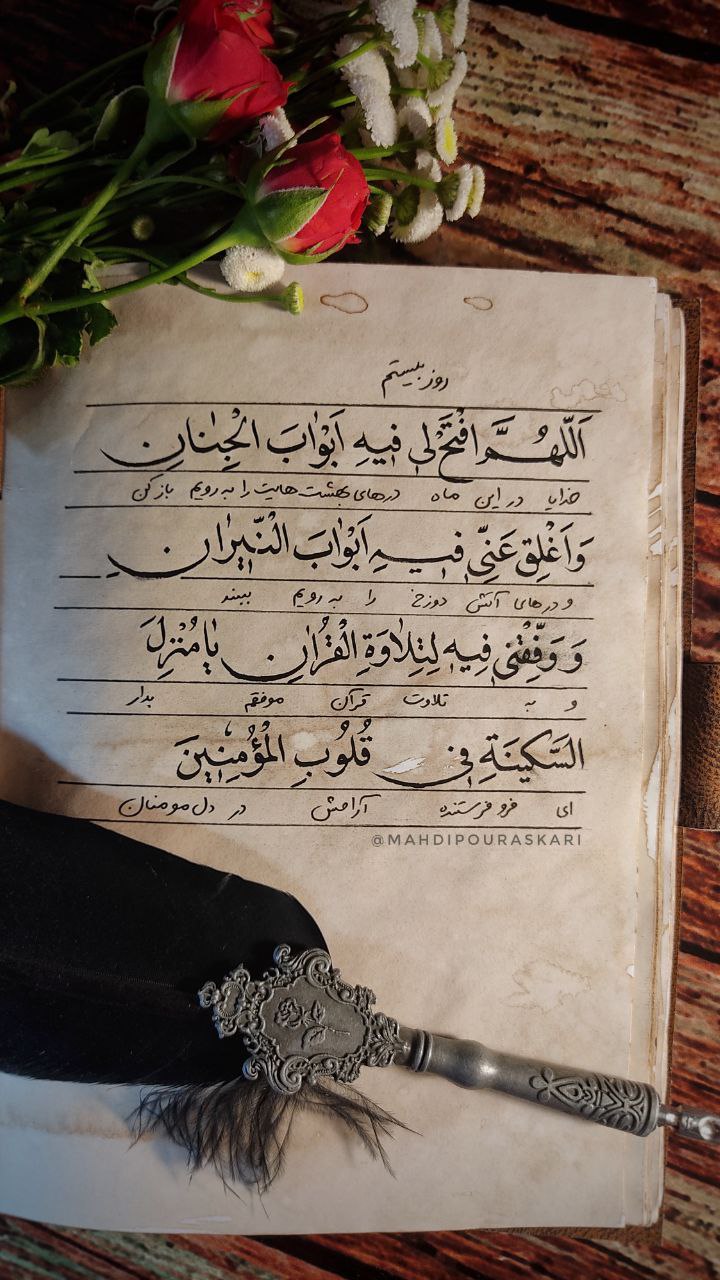 روز بیستم
اَللّٰهُمَّ افْتَحْ لی فیهِ اَبْوٰابَ الْجِنٰانِ
خدایا در این ماه درهای بهشت هایت را به رویم باز کن
وَ اَغْلِقْ عَنّی فیهِ اَبْوٰابَ النّیرٰانِ
و درهای آتش دوزخ را به رویم ببند
وَ وَفِّقْنی فیهِ لِتِلٰاوَةِ الْقُرْاٰنِ یٰا مُنْزِلَ
و به تلاوت قرآن موفقم بدار
السَّکینَةِ فی قُلُوبِ الْمُؤْمِنینَ
ای فرو فرستنده آرامش در دل مومنان
@MAHDIPOURASKARI